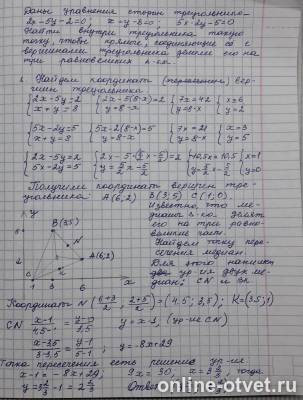 Даны уравнения сторон треугольника
2x-5y-2=0; x+y-8=0; 5x-2y-5=0
Найти внутри треугольника такую
точку, чтобы прямые, соединяющие её с
вершинами треугольника делили его на
три равновеликих
Найдем координат вер-
шин треугольника
{2x-5y=2 x+y=8 {2x-5(8-x)=2 y=8-x {7x=42 y=8-x {x=6 y=2
{5x-2y=5 x+y=8 {5x-2(8-x)=5 y=8-x {7x=21 y=8-x {x=3 y=5
{2x-5y=2 5x-2y=5
x=1 y=0
Получили координат вершин тре-
угольника A(6;2) B(3;5) C(1;0).
Известно, что ме-
дианы делят
его на три равно-
великие части.
Найдем точку пере-
сечения медиан.
Для этого напишем
ур-ия двух ме-
диан: CN и
y
B(3,5)
N
A(6;2)
C
x
Координаты N((6+3)/2; (2+5)/2) = (4,5; 3,5); K=(3,5; 1)
CN (x-1)/(4,5-1) = (y-0)/3,5; y=x-1 (ур-ие CN)
(x-3,5)/(3-3,5) = (y-1)/(5-1); y=-8x+29
Точка пересечения есть решение ур-ия
x-1=-8x+29; 9x=30, x=3 1/3, тогда
y=3 1/3-1=2 1/3 Ответ
online-otvet.ru